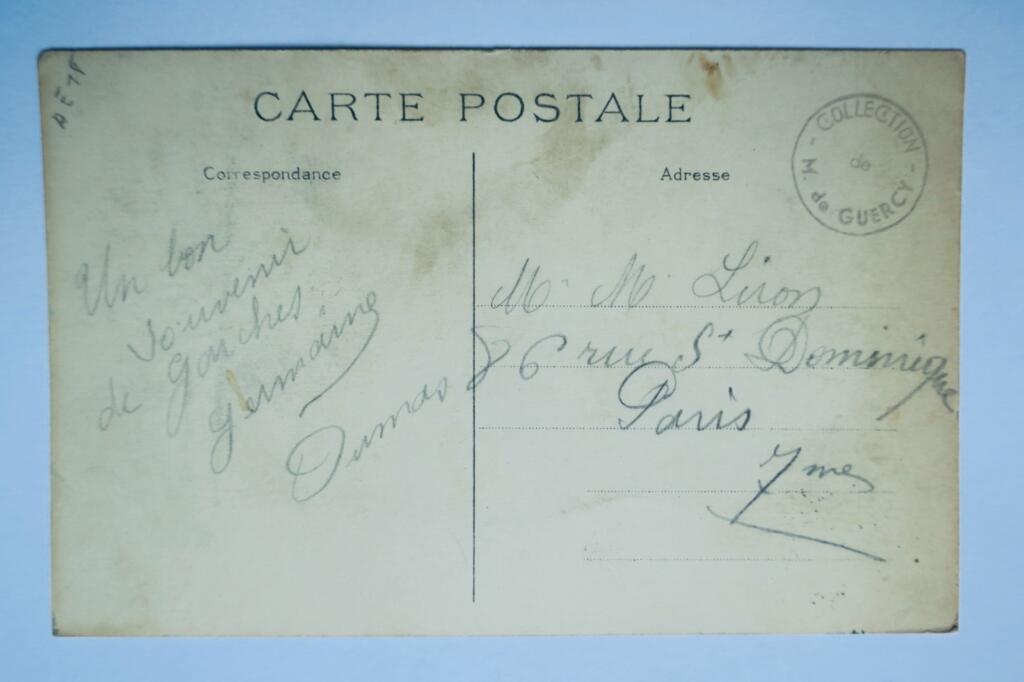 CARTE POSTALE
Correspondance
Adresse
COLLECTION
de
M. de GUERCY
Un bon
souvenir
de Gouches
Germaine
Dumas
M. M. Liron
86 rue St Dominique
Paris
7me